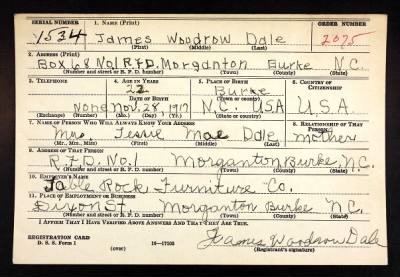 SERIAL NUMBER 1. NAME (Print) ORDER NUMBER
1534 James Woodrow Dale 2075
(First) (Middle) (Last)
2. ADDRESS (Print)
Box 68 No1 R.F.D. Morganton Burke N.C.
(Number and street or R. F. D. number) (Town) (County) (State)
3. TELEPHONE 4. AGE IN YEARS 5. PLACE OF BIRTH 6. COUNTRY OF CITIZENSHIP
22 Burke
DATE OF BIRTH (Town or county)
None Nov. 28, 1917 N.C. USA U.S.A.
(Exchange) (Number) (Mo.) (Day) (Yr.) (State or country)
7. NAME OF PERSON WHO WILL ALWAYS KNOW YOUR ADDRESS 8. RELATIONSHIP OF THAT PERSON
Mrs. Mae Dale Mother
(Mr., Mrs., Miss) (First) (Middle) (Last)
9. ADDRESS OF THAT PERSON
R.F.D. No. 1 Morganton Burke N.C.
(Number and street or R. F. D. number) (Town) (County) (State)
10. EMPLOYER'S NAME
Table Rock Furniture Co.
11. PLACE OF EMPLOYMENT OR BUSINESS
Dixon St. Morganton Burke N.C.
(Number and street or R. F. D. number) (Town) (County) (State)
I AFFIRM THAT I HAVE VERIFIED ABOVE ANSWERS AND THAT THEY ARE TRUE.
REGISTRATION CARD
D. S. S. Form 1 (over) 16—17105 James Woodrow Dale
(Registrant's signature)